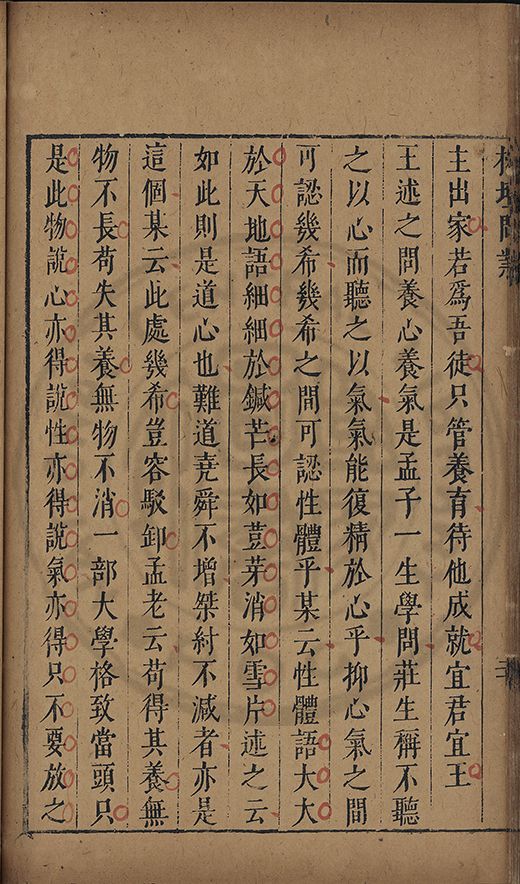 榕壇問業
主出家若爲吾徒只管養育待他成就宜君宜王
王述之問養心養氣是孟子一生學問莊生稱不聽
之以心而聽之以氣氣能復精於心乎抑心氣之間
可認幾希幾希之間可認性體乎某云性體語大大
於天地語細細於鍼芒長如荳芽消如雪片述之云
如此則是道心也難道堯舜不增桀紂不減者亦是
這個某云此處幾希豈容駁卸孟老云苟得其養無
物不長苟失其養無物不消一部大學格致當頭只
是此物說心亦得說性亦得說氣亦得只不要放之